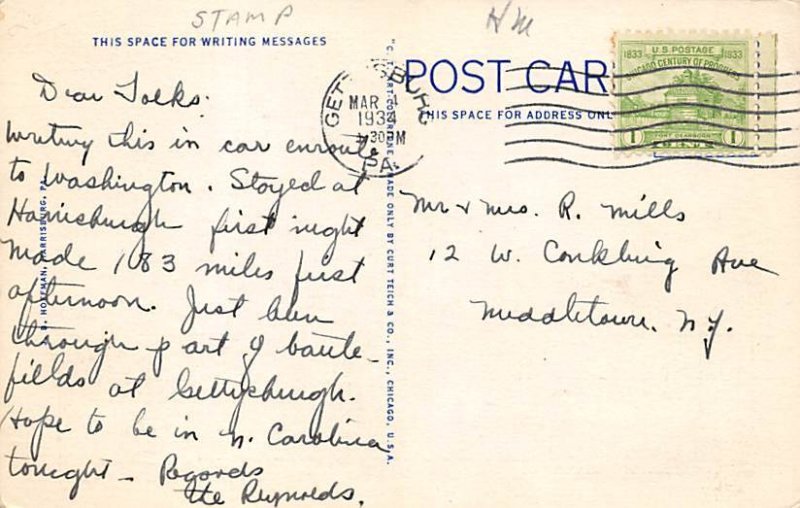 STAMP
HM
THIS SPACE FOR WRITING MESSAGES
Dear Folks.
Writing this in car enroute
to Washington. Stayed at
Harrisburgh first night
Made 183 miles first
afternoon. Just been
through part of battle
fields at Gettysburgh.
Hope to be in N. Carolina
tonight - Regards
The Reynolds.
MADE ONLY BY CURT TEICH & CO., INC., CHICAGO, U.S.A.
HOFFMAN, HARRISBURG, PA.
GETTYSBURG
MAR
1934
30PM
PA.
POST CAR
THIS SPACE FOR ADDRESS ONL
U.S. POSTAGE
1833 1933
CHICAGO CENTURY OF PROGRESS
FORT DEARBORN
1 1
Mr & Mrs. R. Mills
12 W. Conkling Ave
Middletown. N.Y.